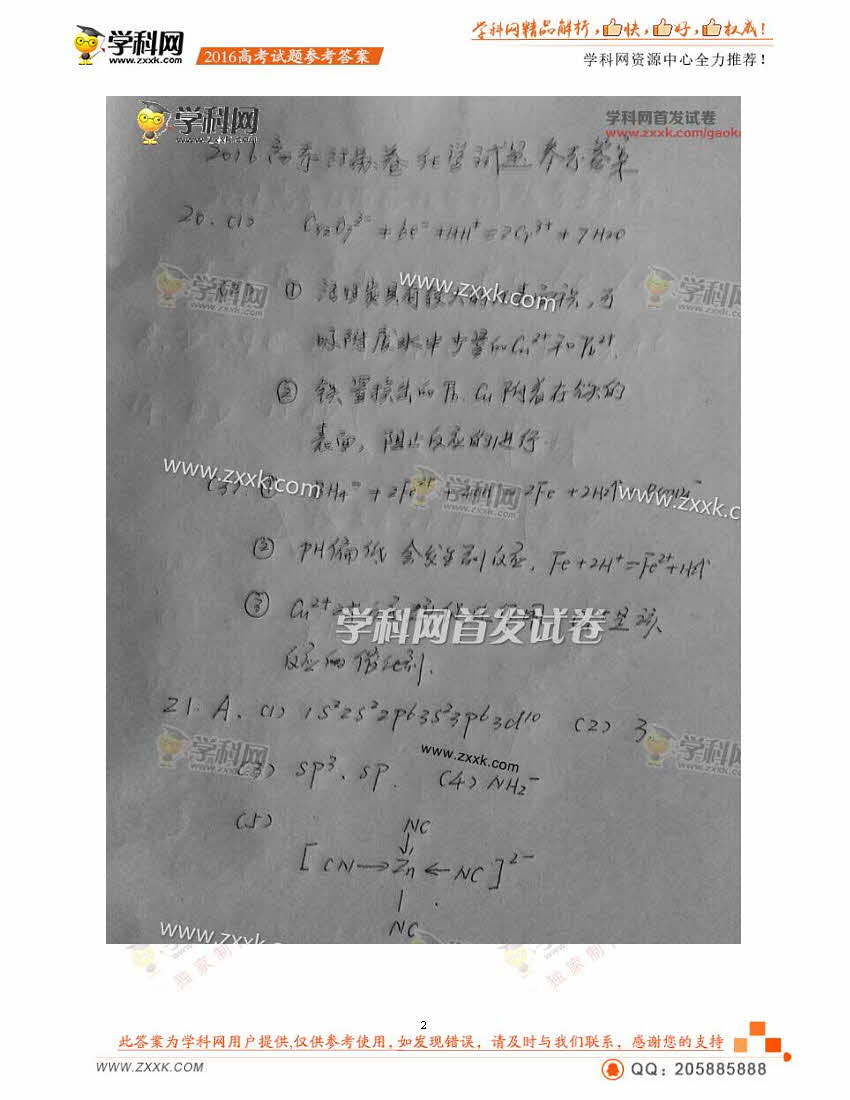 学科网
www.zxxk.com
2016高考试题参考答案
学科网精品解析,快,好,权威!
学科网资源中心全力推荐!
学科网
学科网首发试卷
www.zxxk.com/gaok
2016高考 卷化学试题参考答案
20.(1) Cr2O7²⁻ + 6e⁻ +14H⁺=2Cr³⁺ + 7H2O
www.zxxk.com
学科网
① 活性炭具有较大的 ,可
吸附废水中少量的Cu²⁺和Pb²⁺.
② 铁置换出的Pb、Cu附着在铁的
表面,阻止反应的进行
www.zxxk.com
学科网
www.zxxk.com
(3) ① BH4⁻ + 2Fe²⁺ = 2Fe + 2H2↑
② PH偏低会发生副反应,Fe+2H⁺=Fe²⁺+H2↑
③ Cu²⁺ 是该
学科网首发试卷
反应的催化剂.
21. A. (1) 1s²2s²2p⁶3s²3p⁶3d¹⁰ (2) 3
学科网
www.zxxk.com
学科网
(3) sp³、sp. (4) NH2⁻
(5)
NC
↓
[CN→Zn←NC]²⁻
|
NC
www.zxxk.com
独家制
独家制
2
此答案为学科网用户提供,仅供参考使用,如发现错误,请及时与我们联系,感谢您的支持
WWW.ZXXK.COM
QQ: 205885888